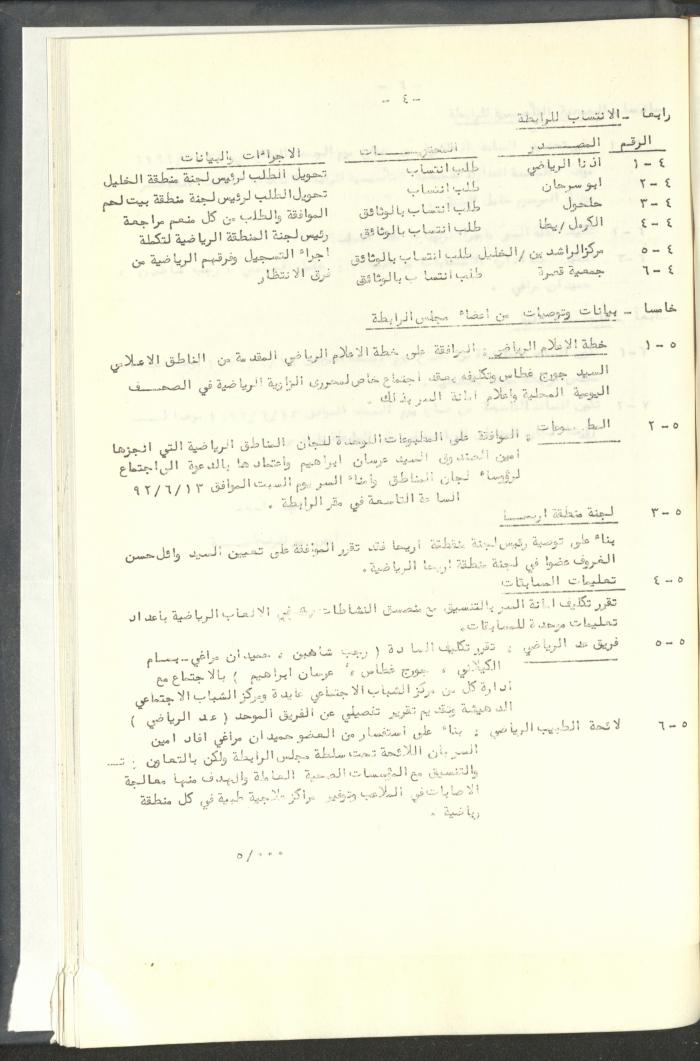 - ٤ -
رابعا - الانتساب للرابطة
الرقم المصدر المحتويات الاجراءات والبيانات
٤ - ١ اذنا الرياضي طلب انتساب تحويل الطلب لرئيس لجنة منطقة الخليل
٤ - ٢ ابو سرحان طلب انتساب تحويل الطلب لرئيس لجنة منطقة بيت لحم
٤ - ٣ حلحول طلب انتساب بالوثائق الموافقة والطلب من كل منهم مراجعة
٤ - ٤ الكرمل/يطا طلب انتساب بالوثائق رئيس لجنة المنطقة الرياضية لتكملة
٤ - ٥ مركز الراشدين/الخليل طلب انتساب بالوثائق اجراء التسجيل وفرقهم الرياضية من
٤ - ٦ جمعية قصرة طلب انتساب بالوثائق فرق الانتظار
خامسا - بيانات وتوصيات من اعضاء مجلس الرابطة
٥ - ١ خطة الاعلام الرياضي : الموافقة على خطة الاعلام الرياضي المقدمة من الناطق الاعلامي
السيد جورج غطاس وتكليفه بعقد اجتماع خاص لمحرري الزاوية الرياضية في الصحف
اليومية المحلية واعلام امانة السر بذلك .
٥ - ٢ المطبوعات : الموافقة على المطبوعات الموحدة للجان المناطق الرياضية التي انجزها
امين الصندوق السيد عرسان ابراهيم واعتمادها بالدعوة الى اجتماع
لرؤساء لجان المناطق وامناء السر يوم السبت الموافق ٩٢/٦/١٣
الساعة التاسعة في مقر الرابطة .
٥ - ٣ لجنة منطقة اريحا
بناء على توصية رئيس لجنة منطقة أريحا فقد تقرر الموافقة على تعيين السيد وائل حسن
الغروف عضوا في لجنة منطقة اريحا الرياضية .
٥ - ٤ تعليمات المسابقات
تقرر تكليف امانة السر بالتنسيق مع منسق النشاطات الالعاب الرياضية بأعداد
تعليمات موحدة للمسابقات .
٥ - ٥ فريق عد الرياضي : تقرر تكليف السادة ( رجب شاهين ، حميدان مراغي - بسام
الكيلاني ، جورج غطاس ، عرسان ابراهيم ) بالاجتماع مع
أدارة كل من مركز الشباب الاجتماعي عايدة ومركز الشباب الاجتماعي
الدهيشة وتقديم تقرير تفصيلي عن الفريق الموحد ( عد الرياضي )
٥ - ٦ لائحة الطبيب الرياضي : بناء على أستفسار من العضو حميدان مراغي افاد امين
السر بان اللائحة تحت سلطة مجلس الرابطة ولكن بالتعاون
والتنسيق مع المؤسسات الصحية العاملة والهدف منها معالجة
الاصابات في الملاعب وتوفير مراكز علاجية طبية في كل منطقة
رياضية .
٥/٠٠٠